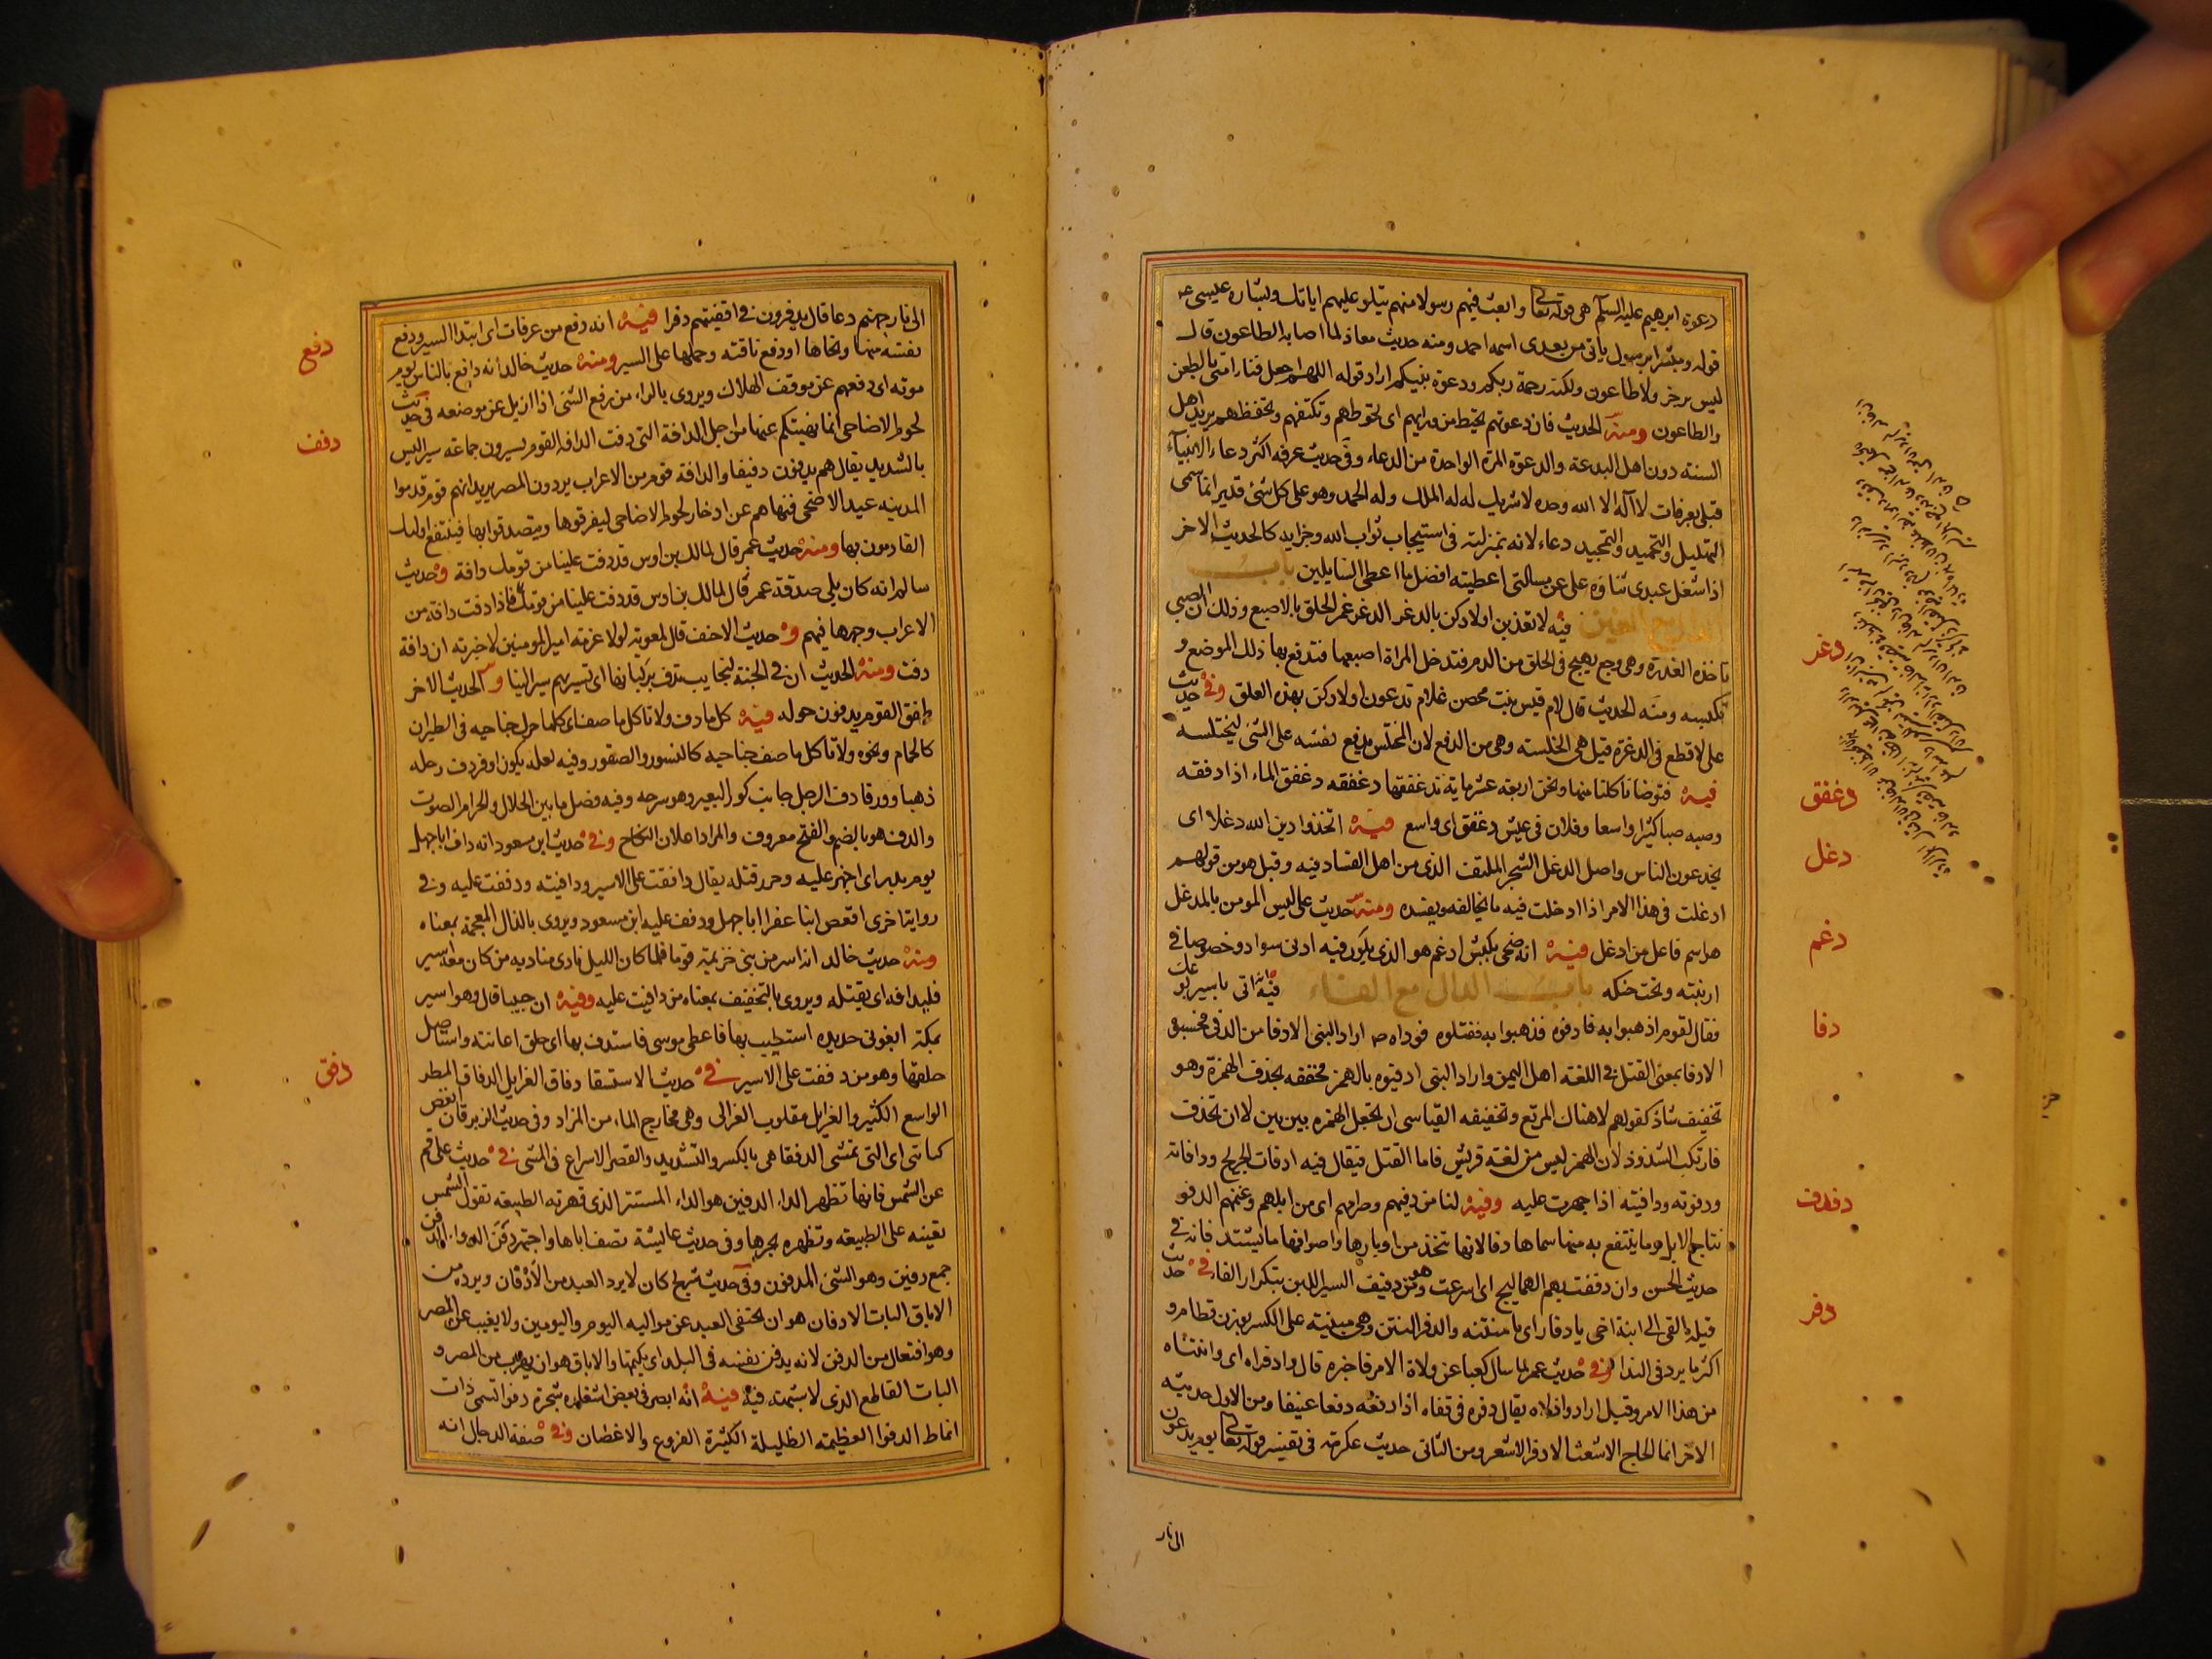 دعوة ابرهيم عليه السلم هى قوله تعالى وابعث فيهم رسولا منهم يتلو عليهم اياتك وبشارة عيسى ع
قوله ومبشرا برسول ياتى من بعدى اسمه احمد ومنه حديث معاذ لما اصابه الطاعون قال
ليس برجز ولا طاعون ولكنه رحمة ربكم ودعوة نبيكم اراد قوله اللهم اجعل فنا امتى بالطعن
والطاعون ومنه الحديث فان دعوتهم تحيط من ورايهم اى تحوطهم وتكنفهم وتحفظهم يريد اهل
السنه دون اهل البدعة والدعوة المرة الواحدة من الدعاء وفى حديث عرفه اكثر دعاء الانبيآء
قبلى بعرفات لا اله الا الله وحده لا شريك له له الملك وله الحمد وهو على كل شئ قدير انما سمى
التهليل والتحميد والتمجيد دعاء لانه بمنزلته فى استيجاب ثواب الله وجزايه كالحديث الاخر
اذا شغل عبدى ثناوه على عن مسالتى اعطيته افضل ما اعطى السايلين باب
الدال مع الغين فيه لا تعذبن اولادكن بالدغر الدغر غمز الحلق بالاصبع وذلك ان الصبى
تاخذه العذرة وهى وجع يهيج فى الحلق من الدم فتدخل المراة اصبعها فتدفع بها ذلك الموضع و
تكبسه ومنه الحديث قال لام قيس بنت محصن علام تدغرن اولادكن بهذه العلق وفى حديث
على لا قطع فى الدغرة قيل هى الخلسته وهى من الدفع لان المختلس يدفع نفسه على الشئ ليختلسه
فيه فتوضانا كلنا منها ونحن اربعة عشر ماية ندغفقها دغفقه دغفق الماء اذا دفقه
وصبه صبا كثيرا واسعا وفلان فى عيش دغفق اى واسع فيه اتخذوا دين الله دغلا اى
يخدعون الناس واصل الدغل الشجر الملتف الذى من اهل الفساد فيه وقيل هو من قولهم
ادغلت فى هذا الامر اذا ادخلت فيه ما يخالفه ويفسده ومنه حديث على ليس المومن بالمدغل
هو اسم فاعل من ادغل فيه انه ضحى بكبش ادغم هو الذى يكون فيه ادنى سواد وخصوصا فى
ارنبته وتحت حنكه باب الدال مع الفاء فيه انه اتى باسير يوعك
فقال لقوم اذهبوا به فادفوه فذهبوا به فقتلوه فوداه ص اراد النبى الادفا من الدفى فحسبوه
الادفا بمعنى القتل فى اللغته اهل اليمن واراد النبى ادفيوه بالهمز فخففه بحذف الهمزة وهو
تخفيف شاذ كقولهم لا هناك المرتع وتخفيفه القياسى ان تجعل الهمزه بين بين لا ان تحذف
فارتكب الشذوذ لان الهمز ليس من لغته قريش فاما القتل فيقال فيه ادفات الجريح ودافاته
ودفوته ودافيته اذا جهزت عليه وفيه لنا من دفيهم وصرامهم اى من ابلهم وغنمهم الدفو
نتاج الابل وما ينتفع به منها سماها دفا لانها تتخذ من اوبارها واصوافها ما يستد فا به فى
حديث الحسن وان دفدفت بهم الهماليج اى اسرعت وهو من دفيف السير اللين بتكرار الفاء فى حديث
قيلة القى الى ابنة اخى يا دفار اى يا منتنه والدفر النتن وهى مبنيته على الكسر بوزن قطام و
اكثر ما يرد فى الندا وفى حديث عمر لما سال كعبا عن ولاة الامر فاخبره قال وادفراه اى وانتناه
من هذا الامر وقيل اراد واذلاه يقال دفره فى قفاه اذا دفعه دفعا عنيفا ومن الاول حديثه
الاخر انما الحاج الاشعث الادفر الاشعر ومن الثانى حديث عكرمة فى تفسير قوله تعالى يوم يدعون
الى نار
دغر
دغفق
دغل
دغم
دفا
دفدف
دفر
الى نار جهنم دعا قال يدفرون فى اقفيتهم دفرا فيه انه دفع من عرفات اى ابتدا السير ودفع
نفسه منها ونحاها او دفع ناقته وحملها على السير ومنه حديث خالد انه دافع بالناس يوم
موته اى دفعهم عن موقف الهلاك ويروى بالراء من رفع الشئ اذا ازيل عن موضعه فى حديث
لحوم الاضاحى انما نهيتكم عنها من اجل الدافة التى دفت الدافه القوم يسيرون جماعة سيرا ليس
بالشديد يقال هم يدفون دفيفا والدافة قوم من الاعراب يردون المصر يريد انهم قوم قدموا
المدينه عيد الاضحى فنهاهم عن ادخار لحوم الاضاحى ليفرقوها ويتصدقوا بها فينتفع اوليك
القادمون بها ومنه حديث عمر قال لمالك بن اوس قد دفت علينا من قومك دافة وحديث
سالم انه كان يلى صدقة عمر قال لمالك بن اوس قد دفت علينا من قومك فاذا دفت دافه من
الاعراب وجهها فيهم و حديث الاحنف قال لمعويه لولا عزمة امير المومنين لاخبرته ان دافة
دفت ومنه الحديث ان فى الجنة لنجايب تدف بركبانها اى تسير بهم سيرا لينا و الحديث الاخر
طفق القوم يدفون حوله فيه كل ما دف ولا تاكل ما صف اى كلما حرك جناحيه فى الطيران
كالحمام ونحوه ولا تاكل ما صف جناحيه كالنسور والصقور وفيه لعله يكون اوقر دف رحله
ذهبا وورقا دف الرحل جانب كور البعير وهو سرجه وفيه فضل ما بين الحلال والحرام الصوت
والدف هو بالضم والفتح معروف والمراد اعلان النكاح وفى حديث ابن مسعود انه داف اباجهل
يوم بدر اى اجهز عليه وحرر قتله يقال دافقت على الاسير ودافيته ودففت عليه وفى
رواية اخرى اقعص ابنا عفرا ابا جهل ودفف عليه ابن مسعود ويروى بالذال المعجمة بمعناه
ومنه حديث خالد انه اسر من بنى خزيمة قوما فلما كان الليل نادى مناديه من كان معه اسير
فليدافه اى يقتله ويروى بالتخفيف بمعناه من دافيت عليه وفيه ان حبيبا قال وهو اسير
بمكة ابغونى حديده استطيب بها فاعطى موسى فاستدف بها اى حلق اعانته واستاصل
حلقها وهو من دففت على الاسير فى حديث الاستسقا دفاق الغرايل الدفاق المطر
الواسع الكثير والغرايل مقلوب الغرالى وهى مخارج الماء من المزاد وفى حديث الزبرقان ابغض
كناينى اى التى تمشى الدفقا هى بالكسر والتشديد والقصر الاسراع فى المشى فى حديث على قم
عن الشمس فانها تظهر الداء الدفين هو الداء المستتر الذى قهرته الطبيعه تقول الشمس
تعينه على الطبيعه وتظهره بحرها وفى حديث عايشة تصف اباها واجتهر دفن الروا الدفن
جمع دفين وهو الشئ المدفون وفى حديث شريح كان لا يرد العبد من الادفان ويرده من
الاباق البات الادفان هو ان يختفى العبد عن مواليه اليوم واليومين ولا يغيب عن المصر
وهو افتعال من الدفن لانه يدفن نفسه فى البلد اى يكتمها والاباق هو ان يهرب من المصر و
البات القاطع الذى لا شبهة فيه فيه انه ابصر فى بعض اسفاره شجرة دفوا تسمى ذات
انماط الدفوا العظيمه الظليلة الكثيرة الفروع والاغصان وفى صفة الدجال انه
دفع
دفف
دفق